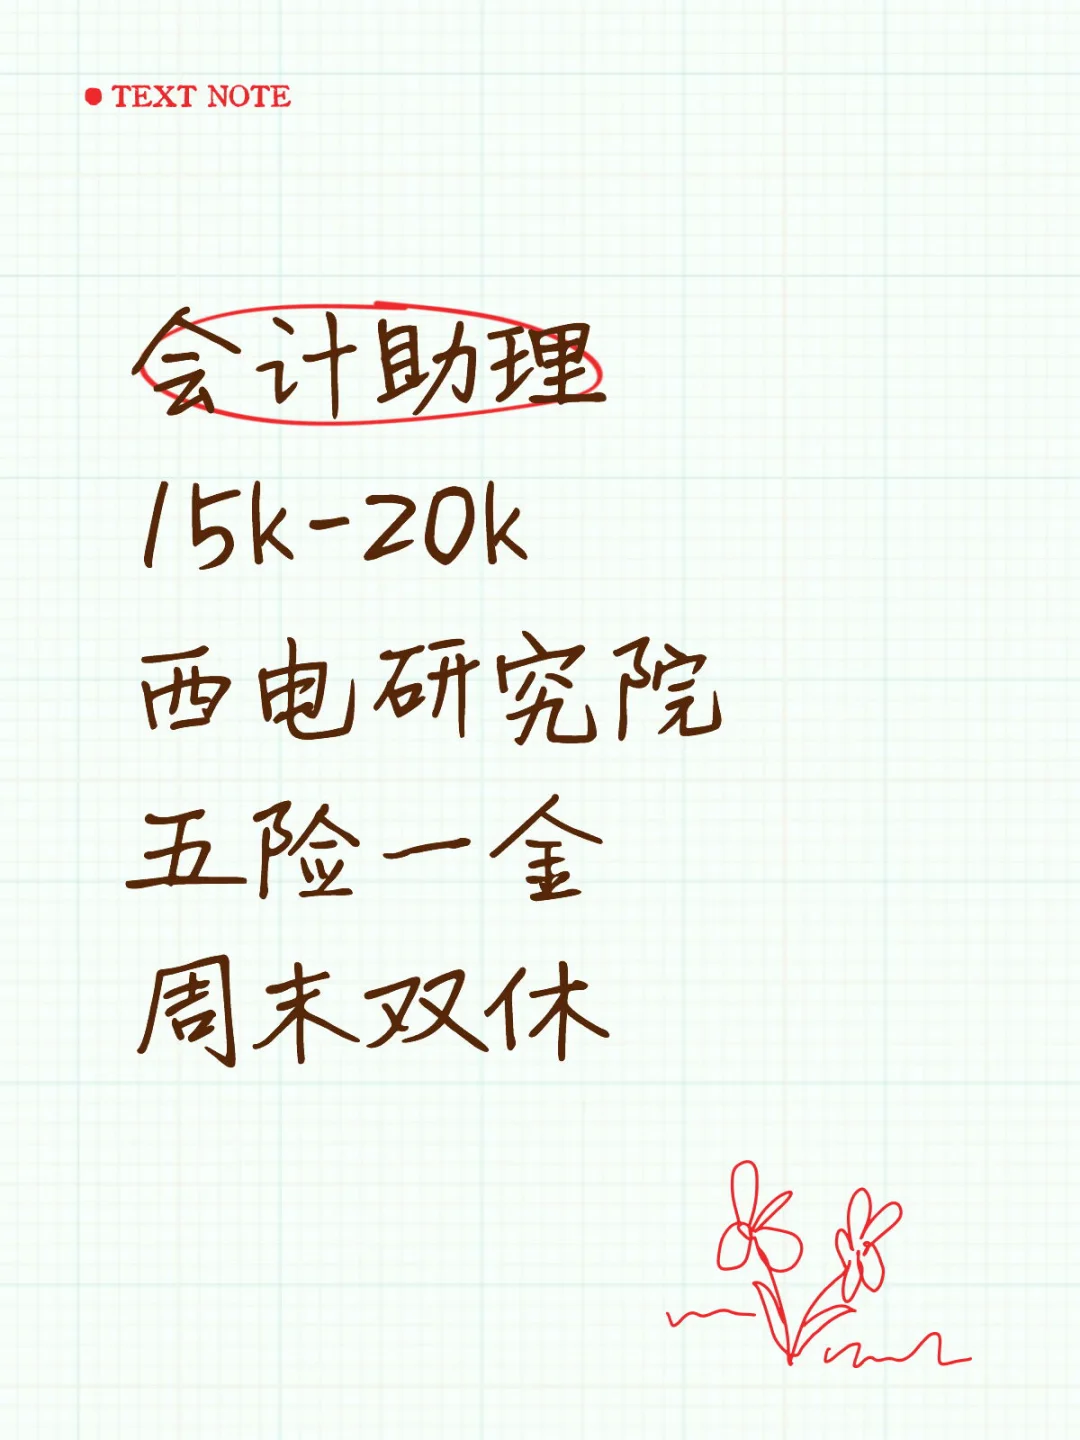 TEXT NOTE
会计助理
15k-20k
西电研究院
五险一金
周末双休